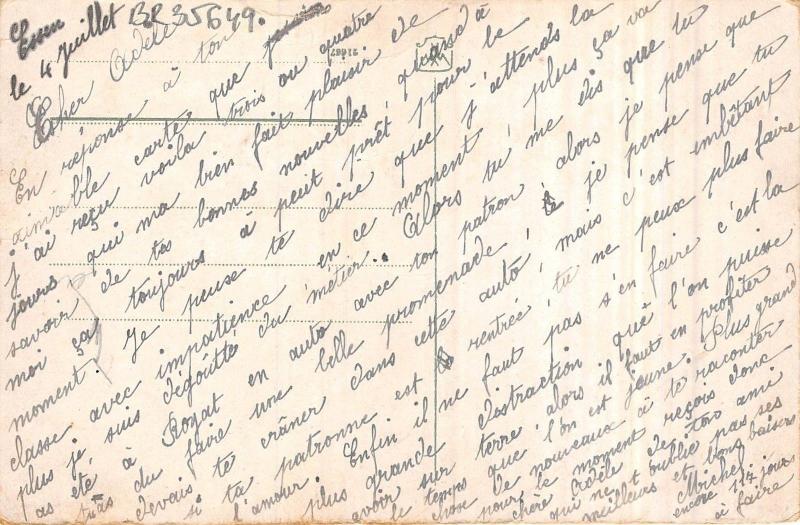 BR35649.
Essen
le 4 Juillet
Cher Adèle
En réponse à ton
aimable carte que
j'ai reçu voila trois ou quatre
jours qui ma bien fait plaisir de
savoir de tes bonnes nouvelles quand à
moi ça toujours à peut prêt pour le
moment. Je peuse te dire que j'attends la
classe avec impatience en ce moment plus ça va
plus je suis dégoutté du métier. Alors tu me dis que tu
as été à Royat en auto avec ton patron, alors je pense que
tu as du faire une belle promenade, je pense que tu
devais te crâner dans cette auto, mais c'est embêtant
si ta patronne est rentrée, tu ne peux plus faire
l'amour. Enfin il ne faut pas s'en faire c'est la
plus grande distraction que l'on puisse
avoir sur terre alors il faut en profiter
le temps que l'on est jeune. Plus grand
chose de nouveaux à te raconter
pour le moment reçois donc
chère Adèle de ton ami
qui ne t'oublie pas ses
meilleurs et bons baisers
Michel
encore 117 jours
à faire